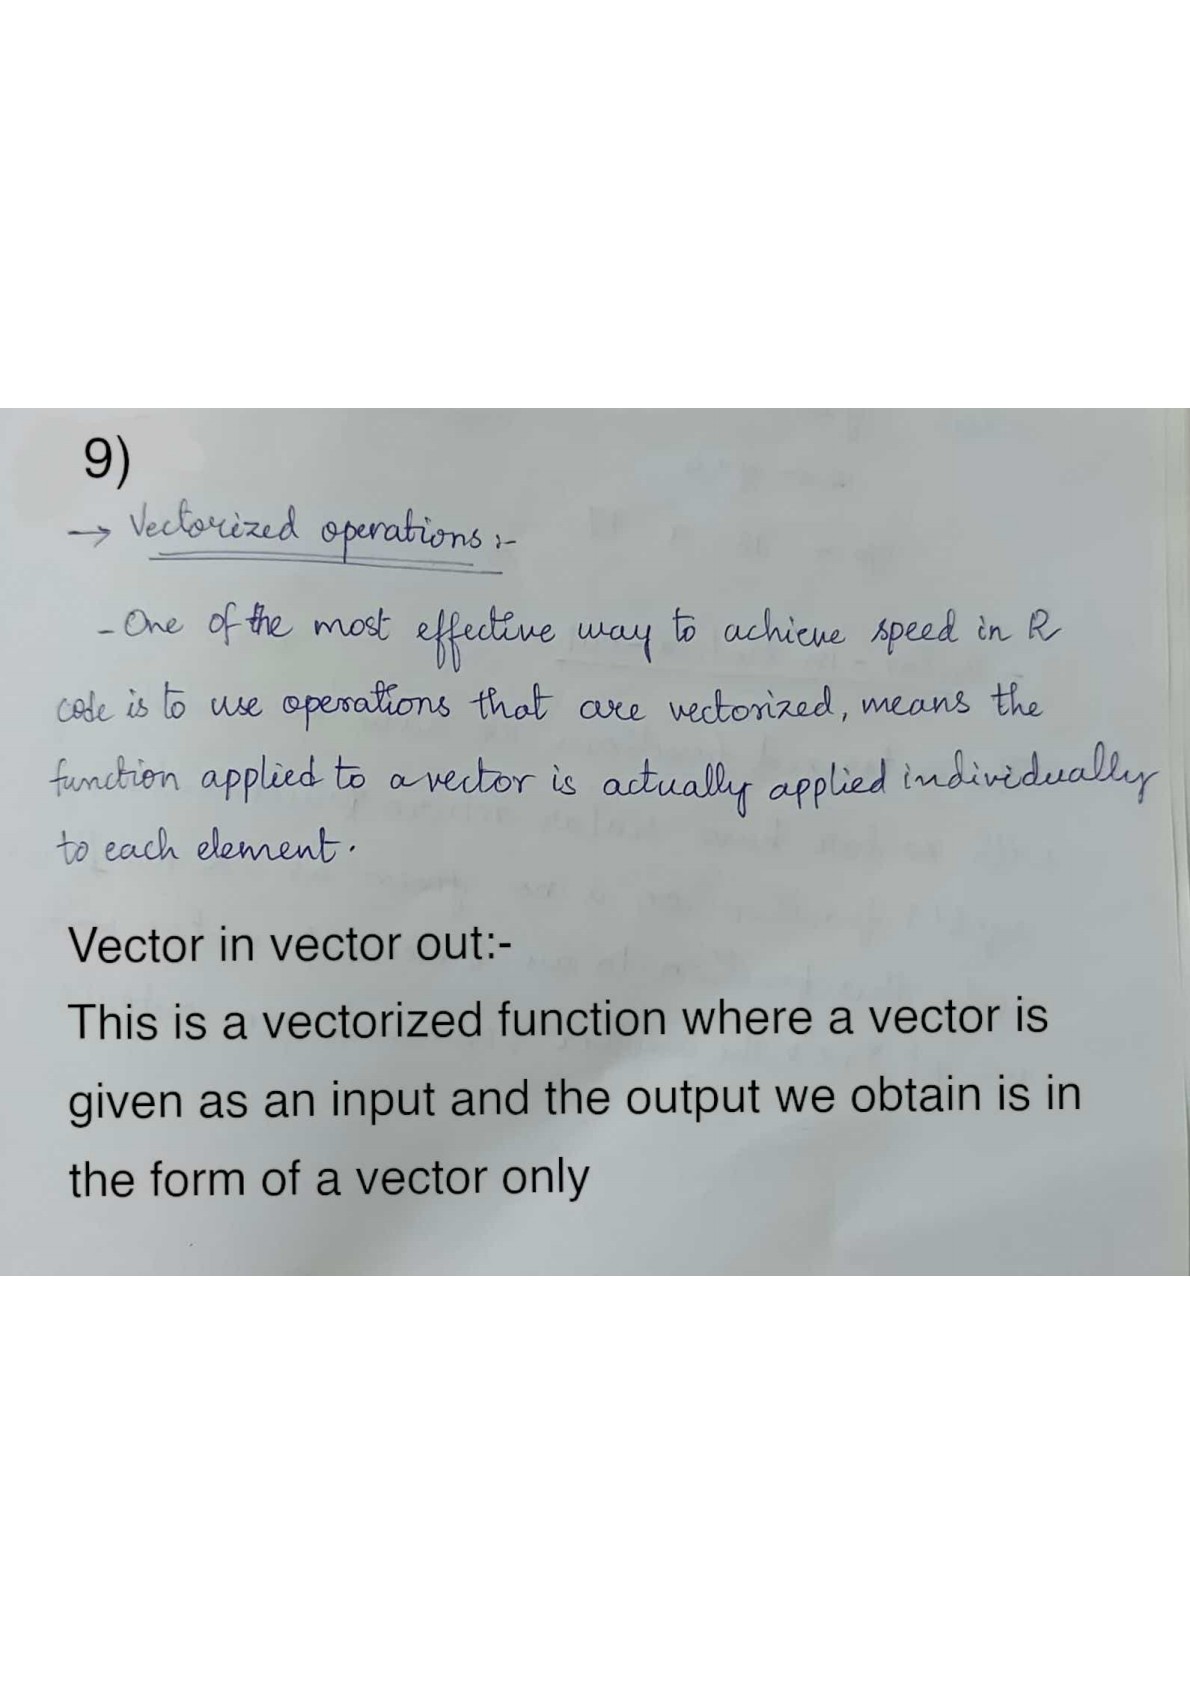 9)
→ Vectorized operations :-
- One of the most effective way to achieve speed in R
code is to use operations that are vectorized, means the
function applied to a vector is actually applied individually
to each element.
Vector in vector out:-
This is a vectorized function where a vector is
given as an input and the output we obtain is in
the form of a vector only